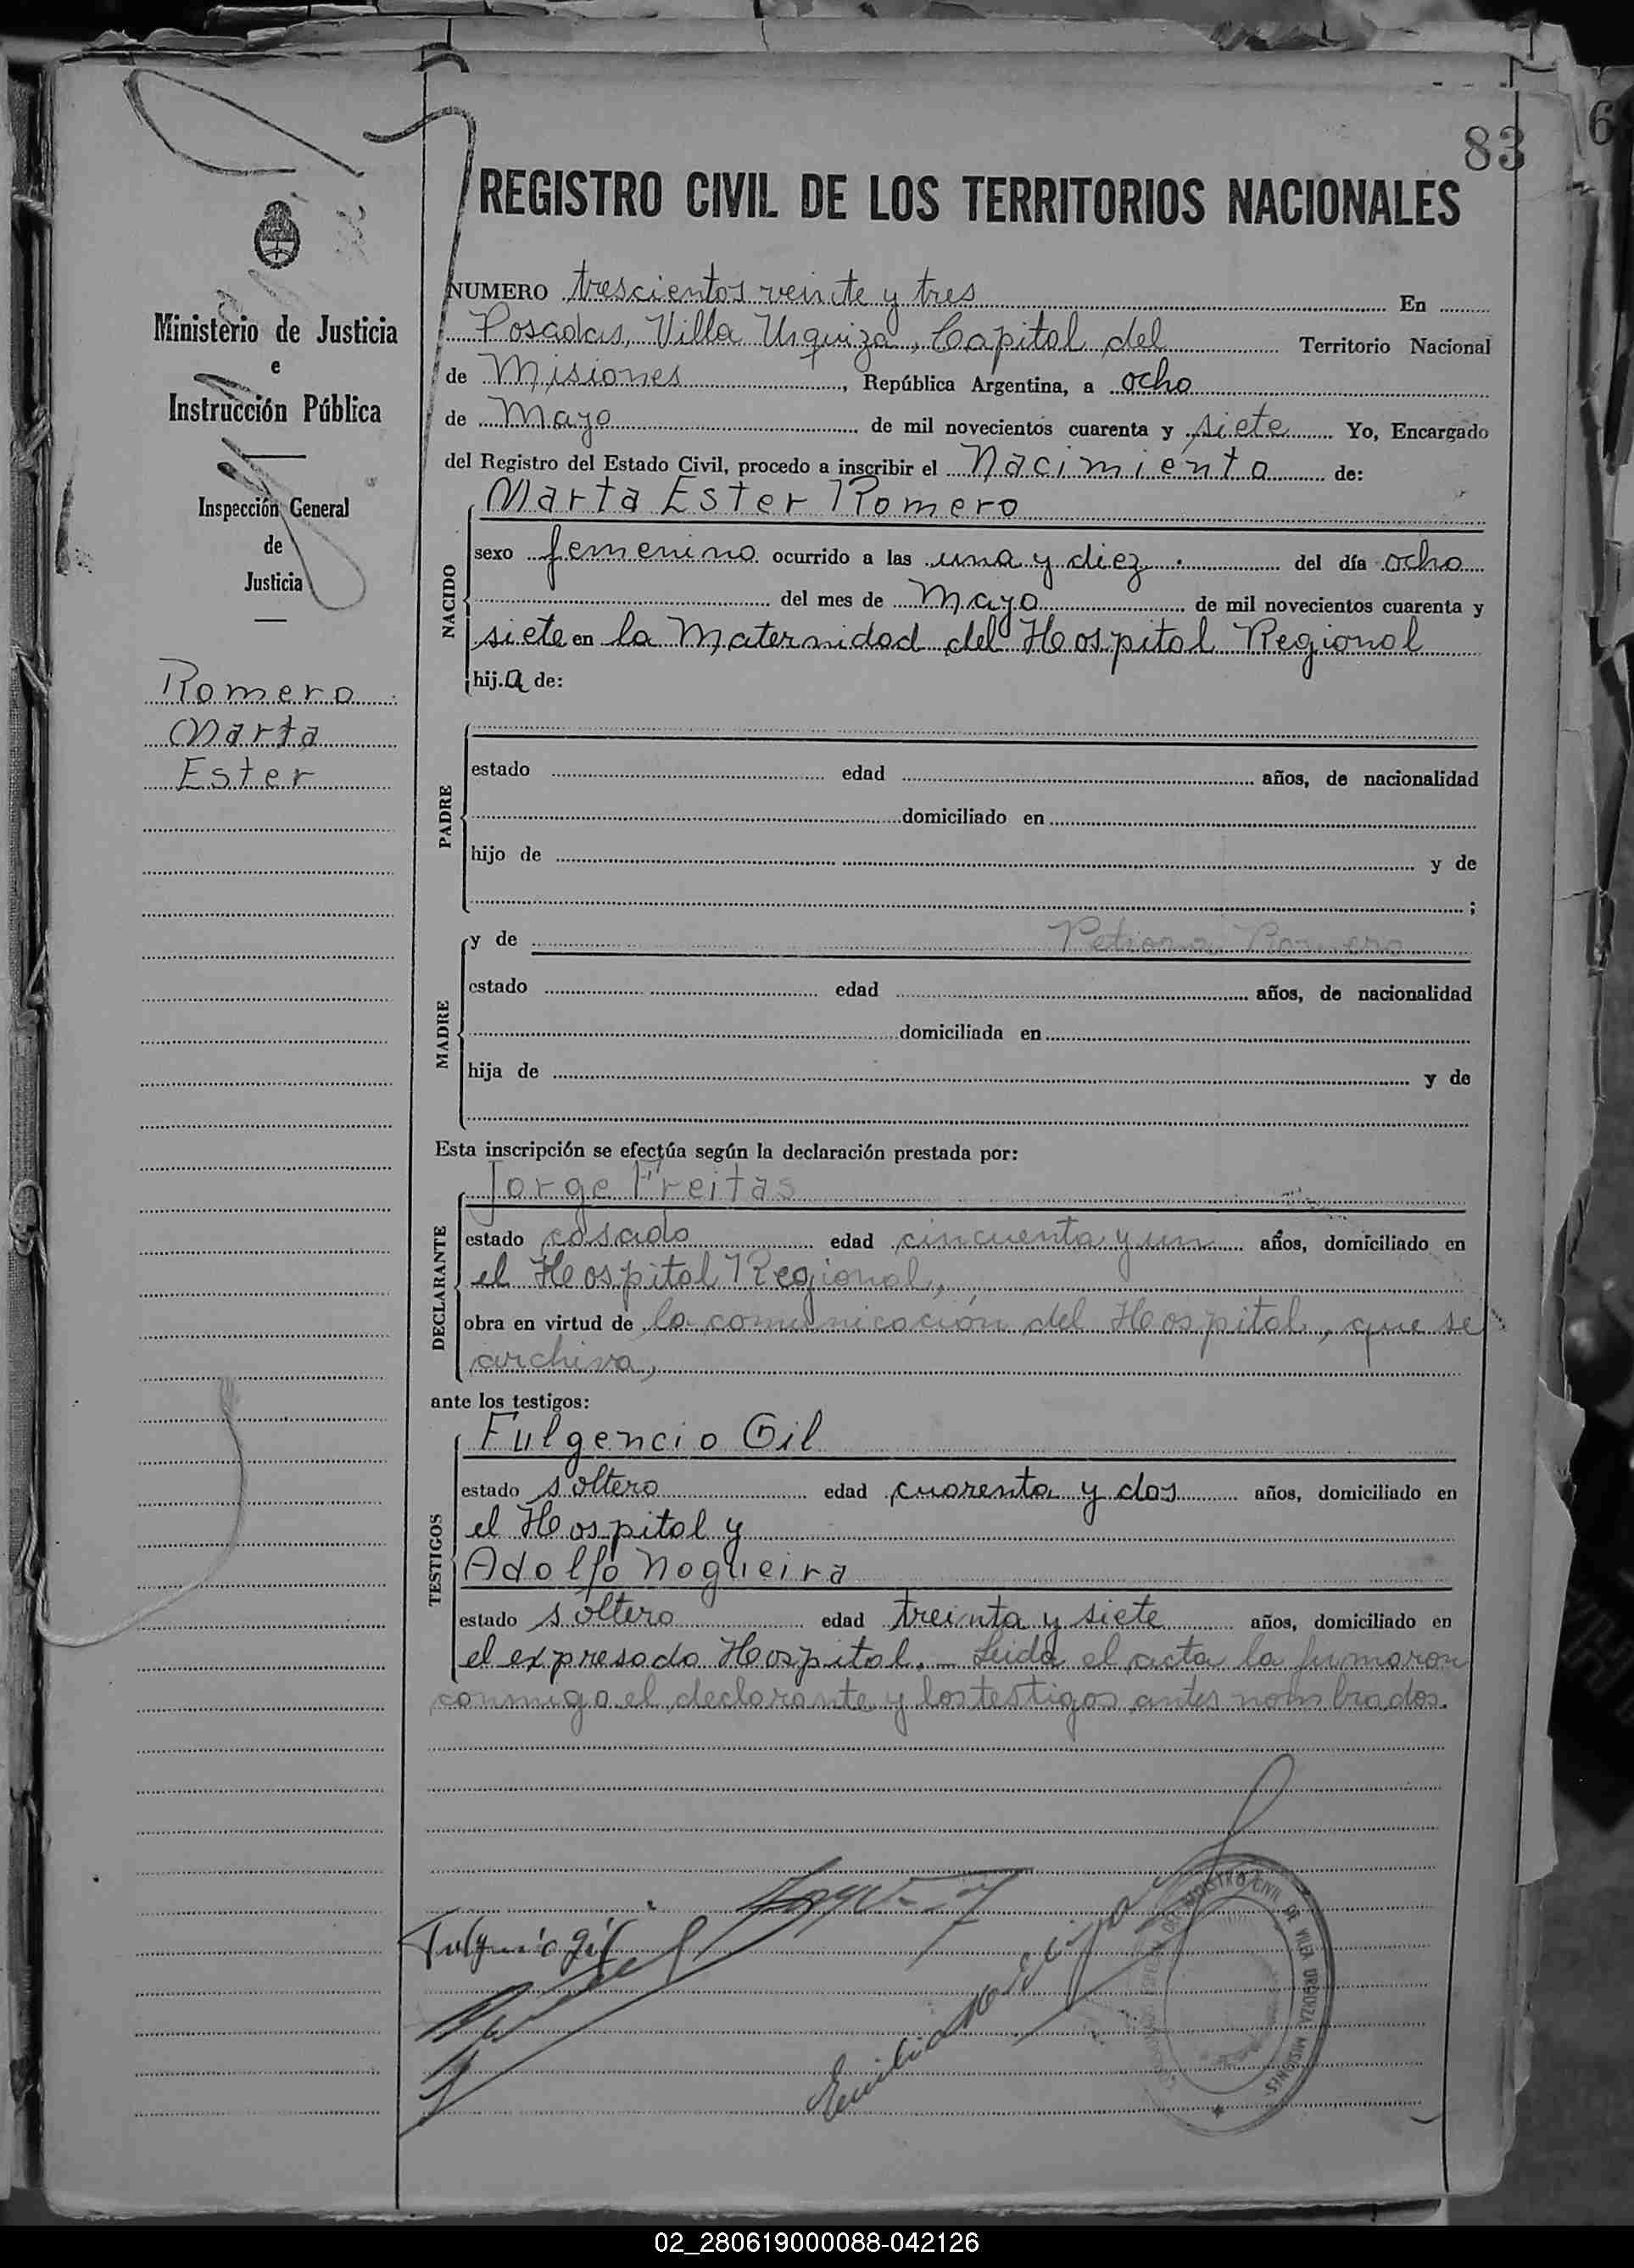 83
REGISTRO CIVIL DE LOS TERRITORIOS NACIONALES
Ministerio de Justicia
e
Instrucción Pública
Inspección General
de
Justicia
Romero
Marta
Ester
NUMERO trescientos veinte y tres En
Posadas, Villa Urquiza, Capital del Territorio Nacional
de Misiones, República Argentina, a ocho
de Mayo de mil novecientos cuarenta y siete Yo, Encargado
del Registro del Estado Civil, procedo a inscribir el Nacimiento de:
NACIDO
Marta Ester Romero
sexo femenino ocurrido a las una y diez del día ocho
del mes de Mayo de mil novecientos cuarenta y
siete en la Maternidad del Hospital Regional
hija de:
PADRE
estado edad años, de nacionalidad
domiciliado en
hijo de y de
;
MADRE
y de Petrona Romero
estado edad años, de nacionalidad
domiciliada en
hija de y de
Esta inscripción se efectúa según la declaración prestada por:
DECLARANTE
Jorge Freitas
estado casado edad cincuenta y un años, domiciliado en
el Hospital Regional,
obra en virtud de la comunicación del Hospital, que se
archiva,
ante los testigos:
TESTIGOS
Fulgencio Gil
estado soltero edad cuarenta y dos años, domiciliado en
el Hospital y
Adolfo Nogueira
estado soltero edad treinta y siete años, domiciliado en
el expresado Hospital.- Leida el acta la firmaron
conmigo el declarante y los testigos antes nombrados.
Fulgencio Gil
REGISTRO CIVIL DE VILLA URQUIZA MISIONES
02_280619000088-042126